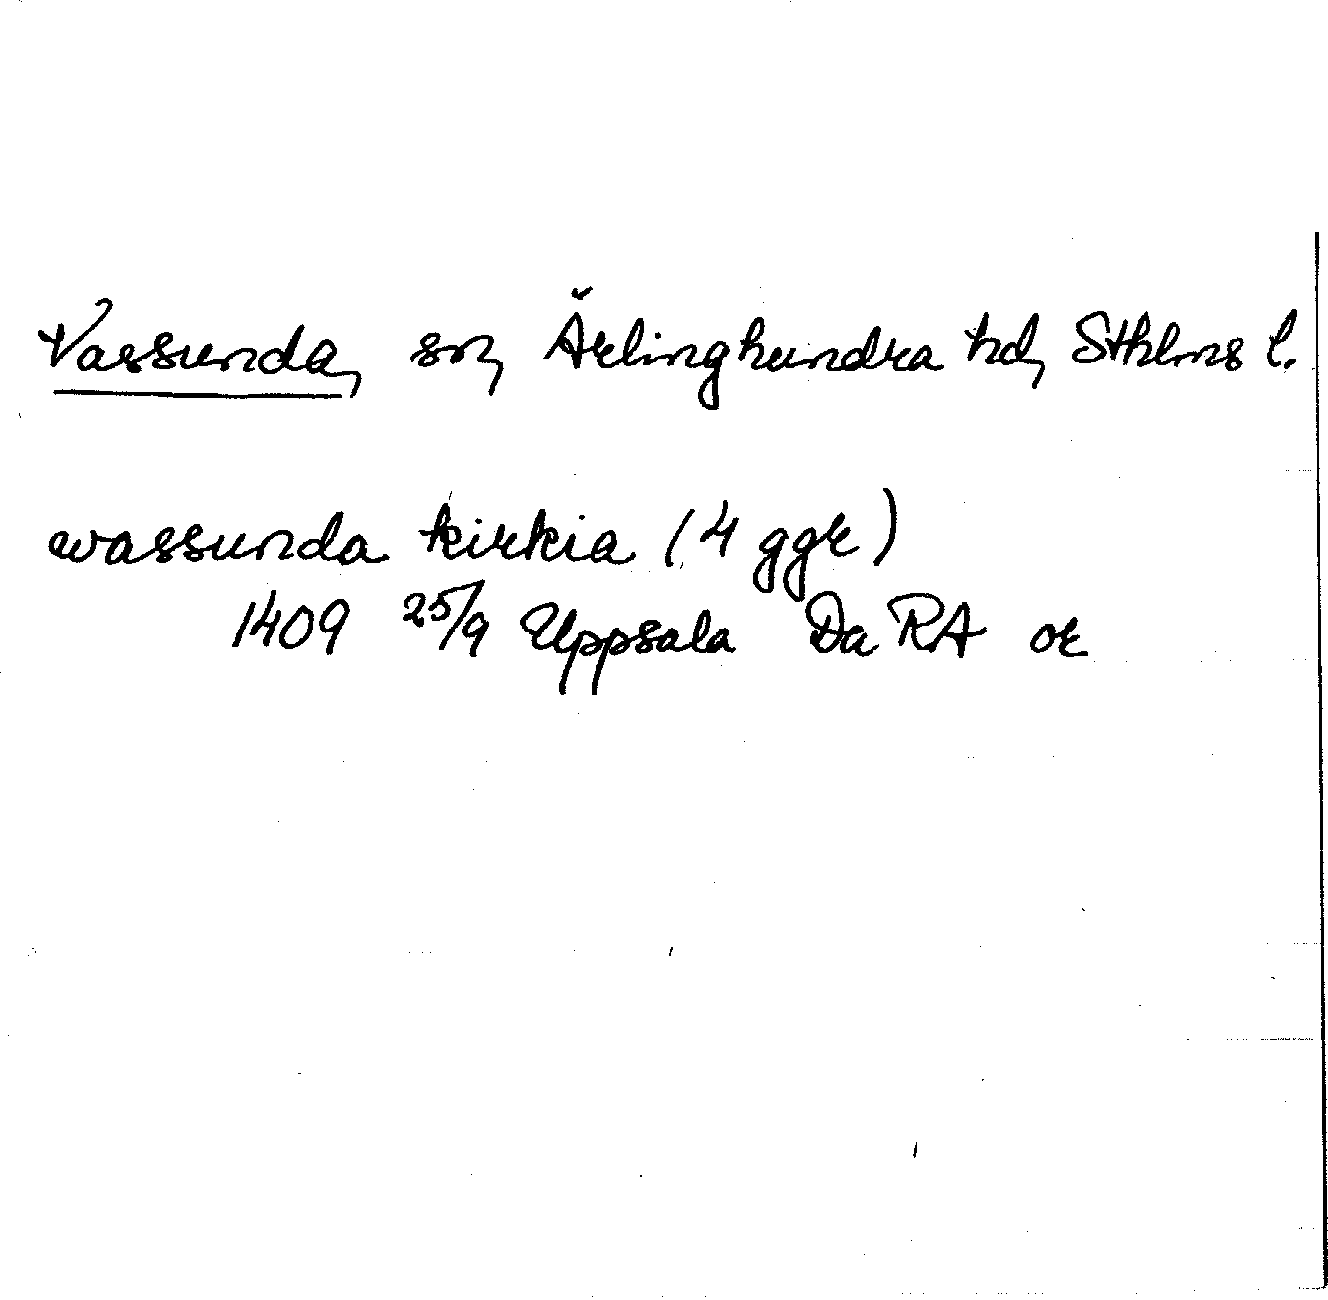 Vassunda, sn, Ärlinghundra hd, Sthlms l.
wassunda kirkia (4 ggr)
1409 25/9 Uppsala Da RA or